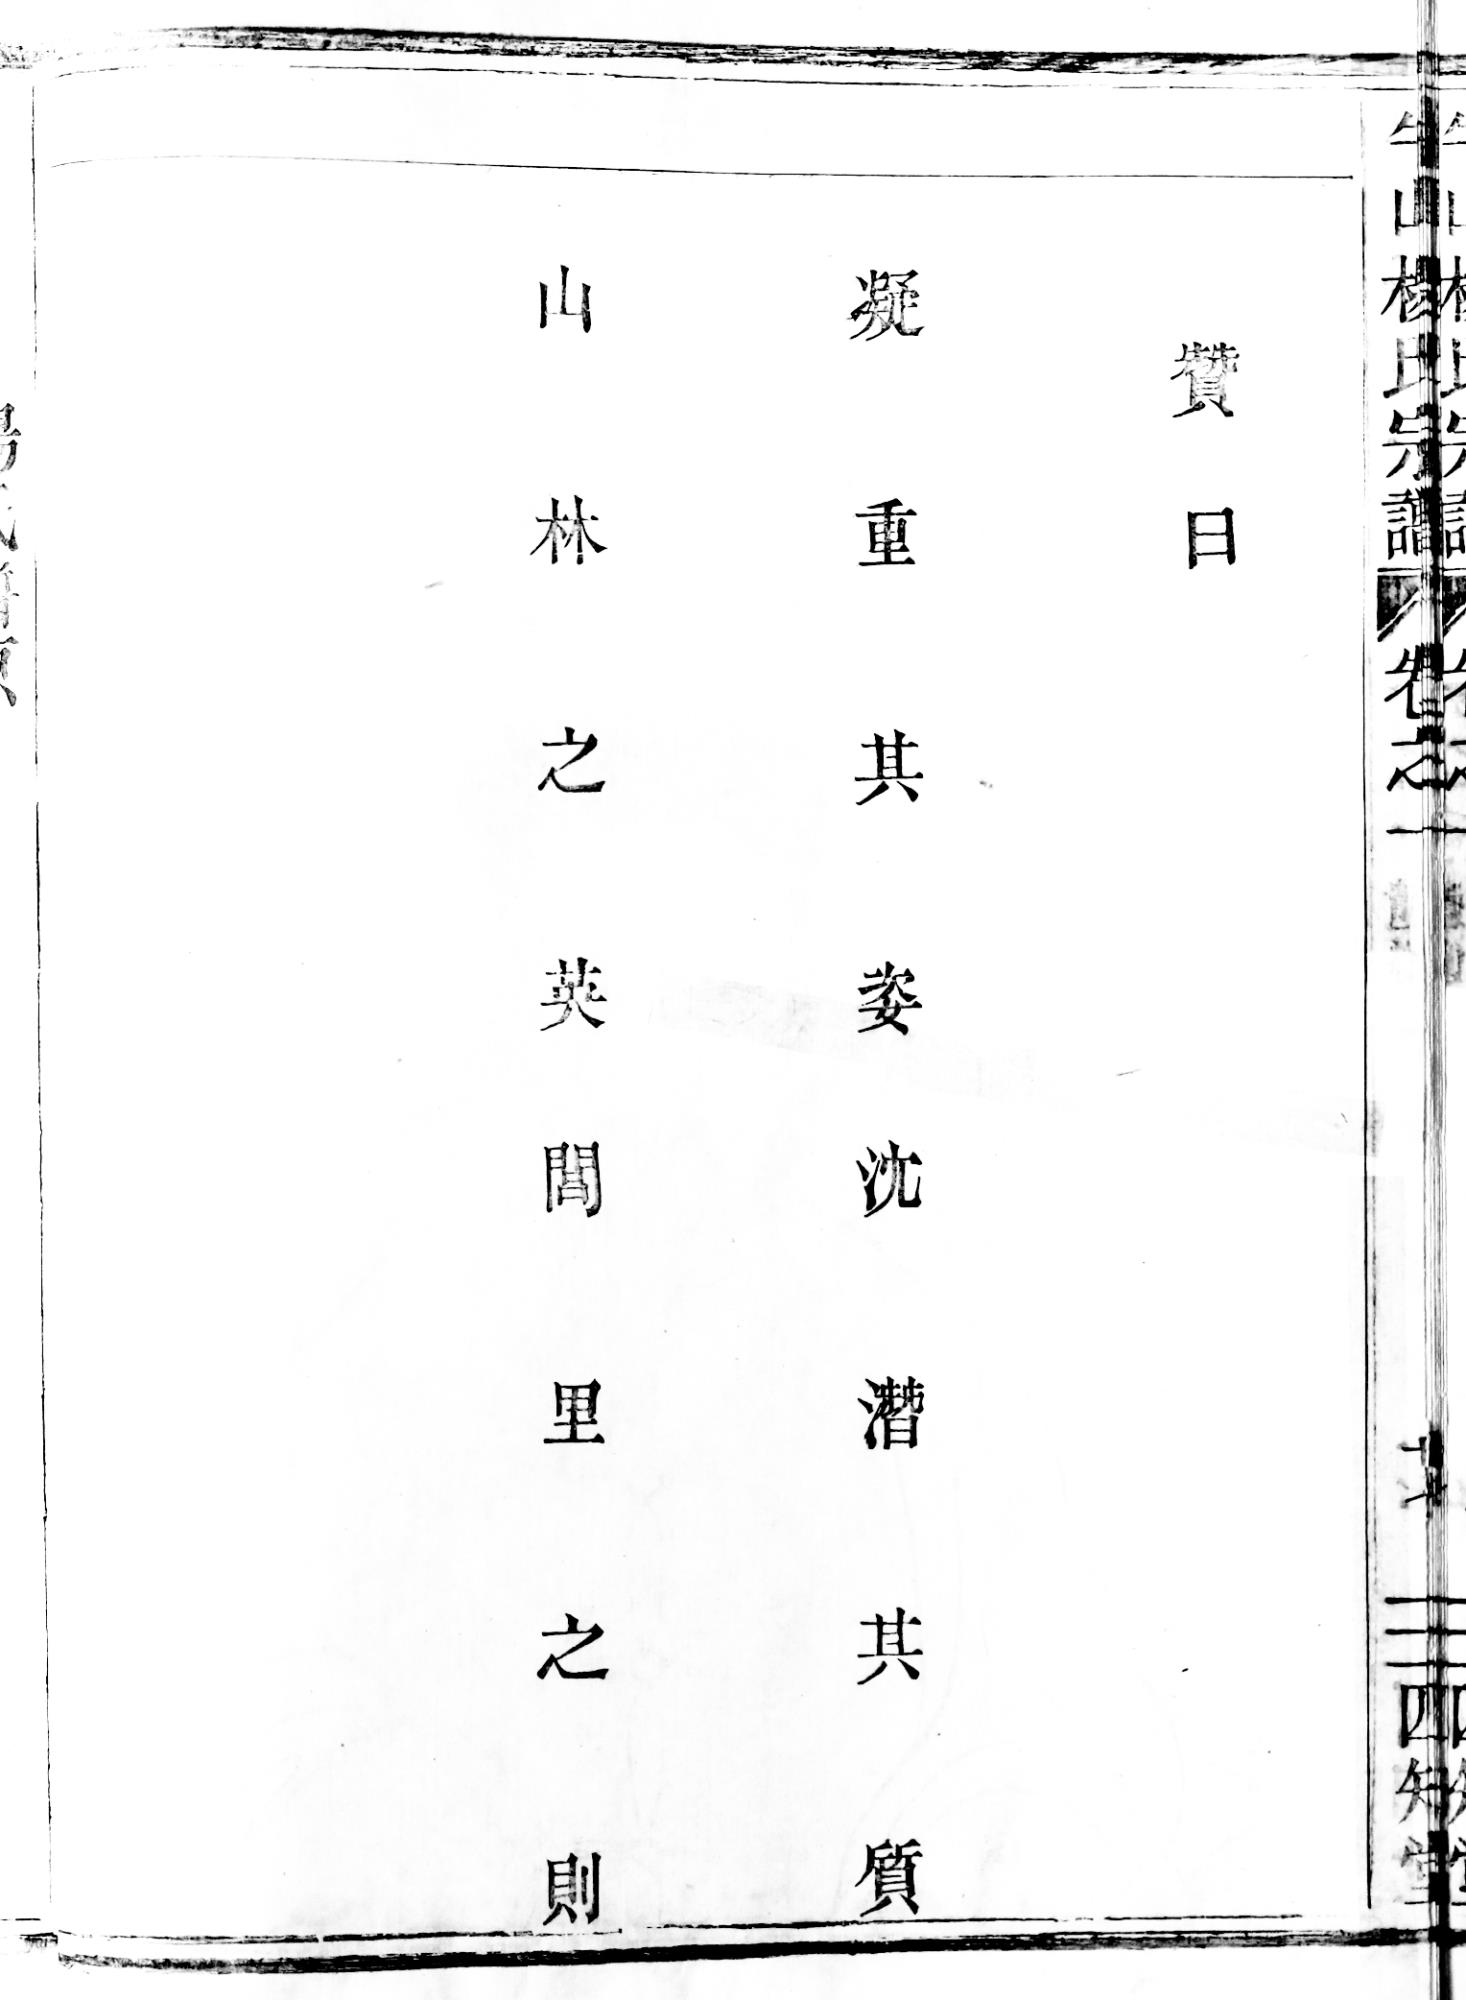 牛山楊氏宗譜
卷之一
四知堂
贊曰
凝重其姿沈潛其質
山林之英閭里之則